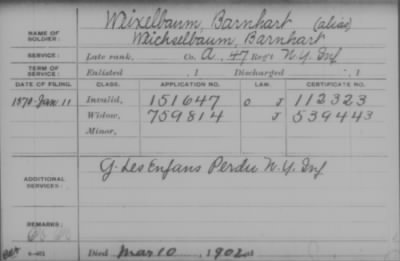 Weixelbaum, Barnhart (alias)
NAME OF SOLDIER: Weichselbaum, Barnhart
SERVICE: Late rank, Co. A, 47 Reg't N.Y. Inf
TERM OF SERVICE: Enlisted , 1 Discharged , 1
DATE OF FILING. CLASS. APPLICATION NO. LAW. CERTIFICATE NO.
1870 Jan 11 Invalid, 151647 O J 112323
Widow, 759814 J 539443
Minor,
ADDITIONAL SERVICES: G Les Enfans Perdu N.Y. Inf
REMARKS:
Died Mar 10, 1902 at